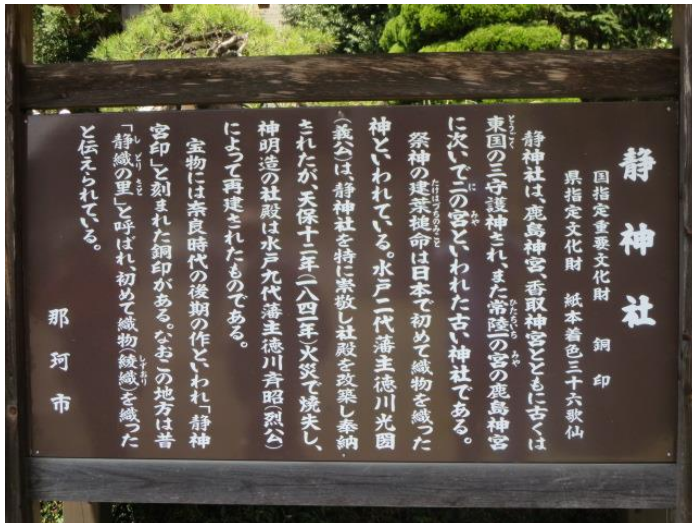 静神社
国指定重要文化財 銅印
県指定文化財 紙本着色三十六歌仙
静神社は、鹿島神宮、香取神宮とともに古くは
東国の三守護神され、また常陸一の宮の鹿島神宮
に次いで二の宮といわれた古い神社である。
祭神の建葉槌命は日本で初めて織物を織った
神といわれている。水戸二代藩主徳川光圀
(義公)は、静神社を特に崇敬し社殿を改築し奉納
されたが、天保十二年(一八四一年)火災で焼失し、
神明造の社殿は水戸九代藩主徳川斉昭(烈公)
によって再建されたものである。
宝物には奈良時代の後期の作といわれ「静神
宮印」と刻まれた銅印がある。なおこの地方は昔
「静織の里」と呼ばれ、初めて織物(綾織)を織った
と伝えられている。
那珂市